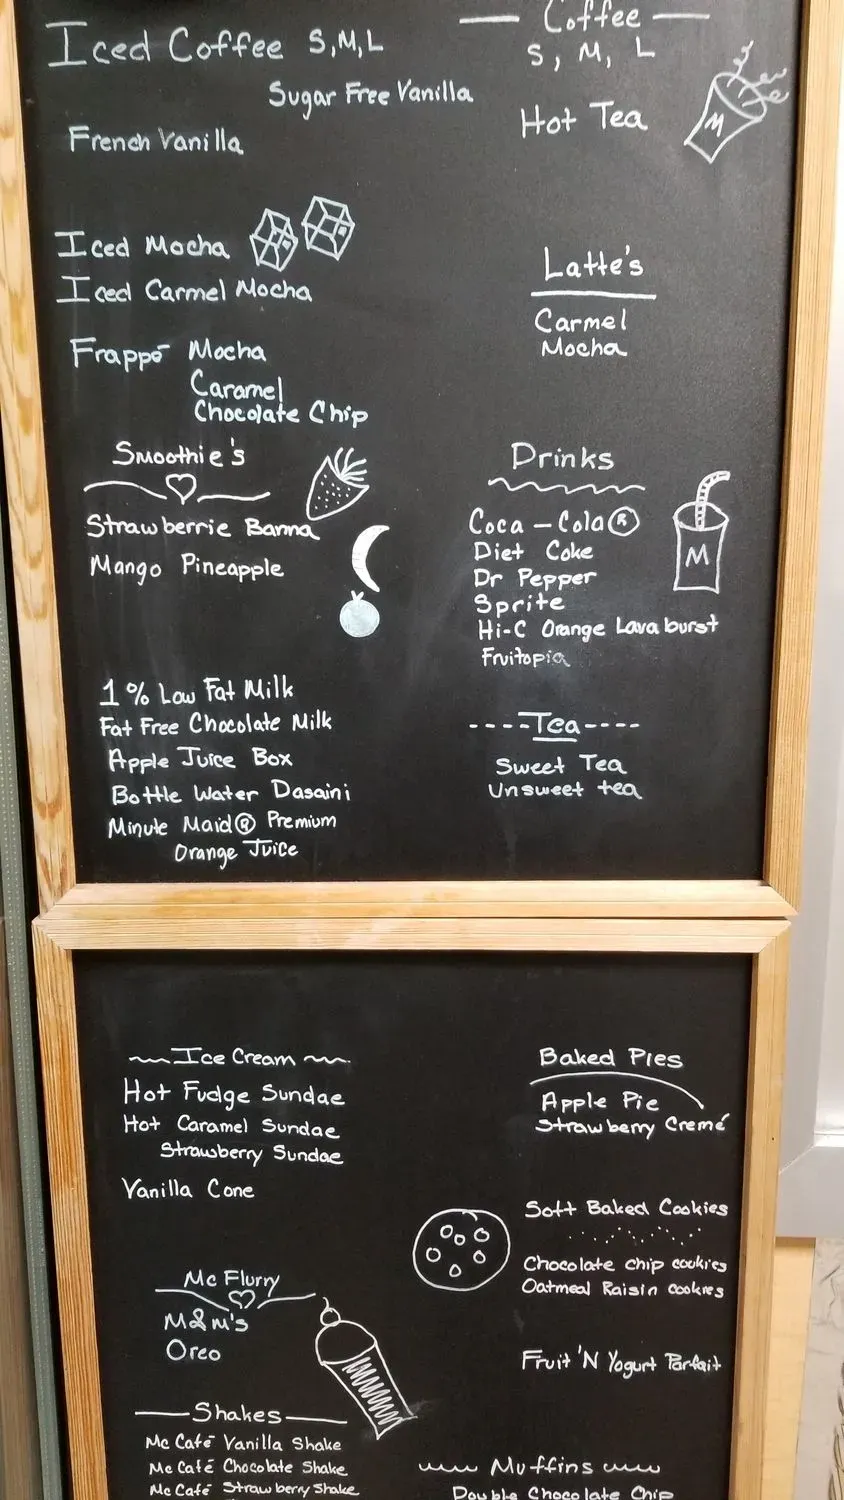 Iced Coffee S,M,L
Sugar Free Vanilla
French Vanilla
Iced Mocha
Iced Carmel Mocha
Frappé Mocha
Caramel
Chocolate Chip
Smoothie's
Strawberrie Banna
Mango Pineapple
1% Low Fat Milk
Fat Free Chocolate Milk
Apple Juice Box
Bottle Water Dasaini
Minute Maid® Premium
Orange Juice
Coffee
S, M, L
Hot Tea
M
Latte's
Carmel
Mocha
Drinks
Coca-Cola®
Diet Coke
Dr Pepper
Sprite
Hi-C Orange Lavaburst
Fruitopia
M
----Tea----
Sweet Tea
Unsweet tea
Ice Cream
Hot Fudge Sundae
Hot Caramel Sundae
Strawberry Sundae
Vanilla Cone
Mc Flurry
M&M's
Oreo
Shakes
Mc Café Vanilla Shake
Mc Café Chocolate Shake
Mc Café Strawberry Shake
Baked Pies
Apple Pie
Strawberry Cremé
Soft Baked Cookies
Chocolate chip cookies
Oatmeal Raisin cookies
Fruit 'N Yogurt Parfait
Muffins
Double Chocolate Chip